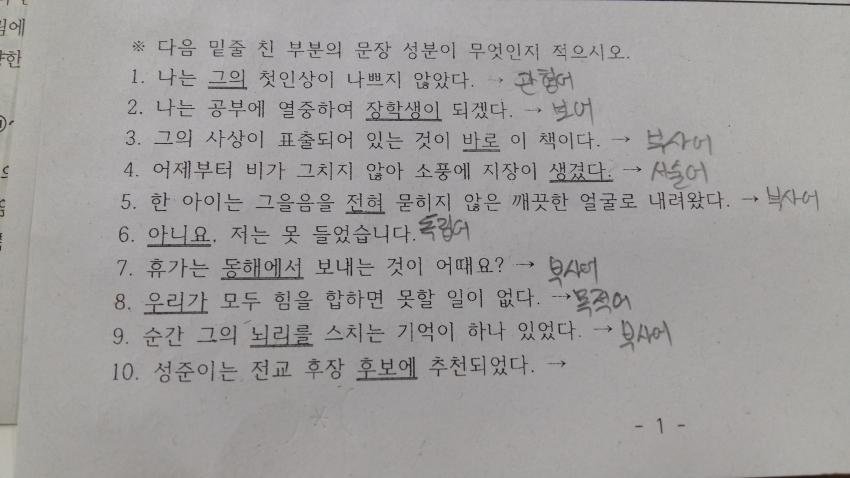 림에
향한
※ 다음 밑줄 친 부분의 문장 성분이 무엇인지 적으시오.
1. 나는 그의 첫인상이 나쁘지 않았다. → 관형어
2. 나는 공부에 열중하여 장학생이 되겠다. → 보어
3. 그의 사상이 표출되어 있는 것이 바로 이 책이다. → 부사어
4. 어제부터 비가 그치지 않아 소풍에 지장이 생겼다. → 서술어
5. 한 아이는 그을음을 전혀 묻히지 않은 깨끗한 얼굴로 내려왔다. → 부사어
6. 아니요, 저는 못 들었습니다. 독립어
7. 휴가는 동해에서 보내는 것이 어때요? → 부사어
8. 우리가 모두 힘을 합하면 못할 일이 없다. → 목적어
9. 순간 그의 뇌리를 스치는 기억이 하나 있었다. → 부사어
10. 성준이는 전교 후장 후보에 추천되었다. →
- 1 -